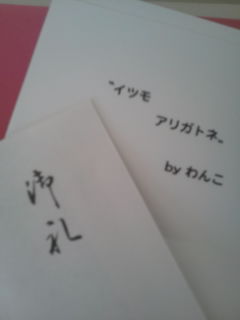 "イツモ
アリガトネ„
by わんこ
御礼